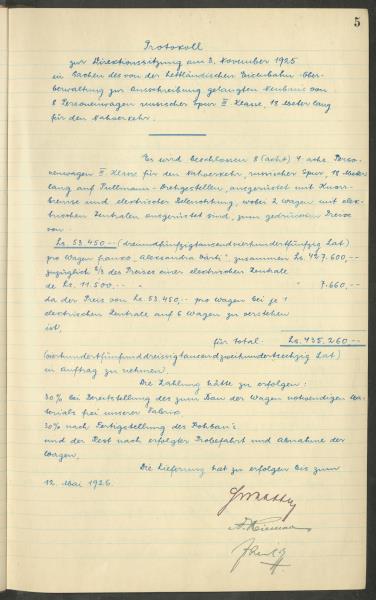 5
Protokoll
zur Direktionssitzung am 3. November 1925
in Sachen des von der Lettländischen Eisenbahn-Ober-
verwaltung zur Ausschreibung gelangten Neubaus von
8 Personenwagen russischer Spur III Klasse, 18 Meter lang
für den Nahverkehr.
Es wird beschlossen 8 (acht) 4-achs. Perso-
nenwagen III Klasse für den Nahverkehr, russischer Spur, 18 Meter
lang auf Pullmann-Drehgestellen, ausgerüstet mit Knorr-
bremse und elektrischer Beleuchtung, wobei 2 Wagen mit elek-
trischen Zentralen ausgerüstet sind, zum gedrückten Preise
von
Ls. 53.450.-- (dreiundfünfzigtausendvierhundertfünfzig Lat)
pro Wagen franko "Alexandra Värti" zusammen Ls. 427.600,--
zuzüglich 2/3 des Preises einer elektrischen Zentrale
de Ls. 11.500.-- " " 7.660,--
da der Preis von Ls. 53.450,-- pro Wagen bei je 1
elektrischen Zentrale auf 6 Wagen zu verstehen
ist,
für Total: Ls. 435.260,--
(vierhundertfünfunddreissigtausendzweihundertsechzig Lat)
in Auftrag zu nehmen.
Die Zahlung hätte zu erfolgen:
30% bei Bereitstellung des zum Bau der Wagen notwendigen Ma-
terials frei unserer Fabrik
30% nach Fertigstellung des Rohbau's
und der Rest nach erfolgter Probefahrt und Abnahme der
Wagen.
Die Lieferung hat zu erfolgen bis zum
12. Mai 1926.